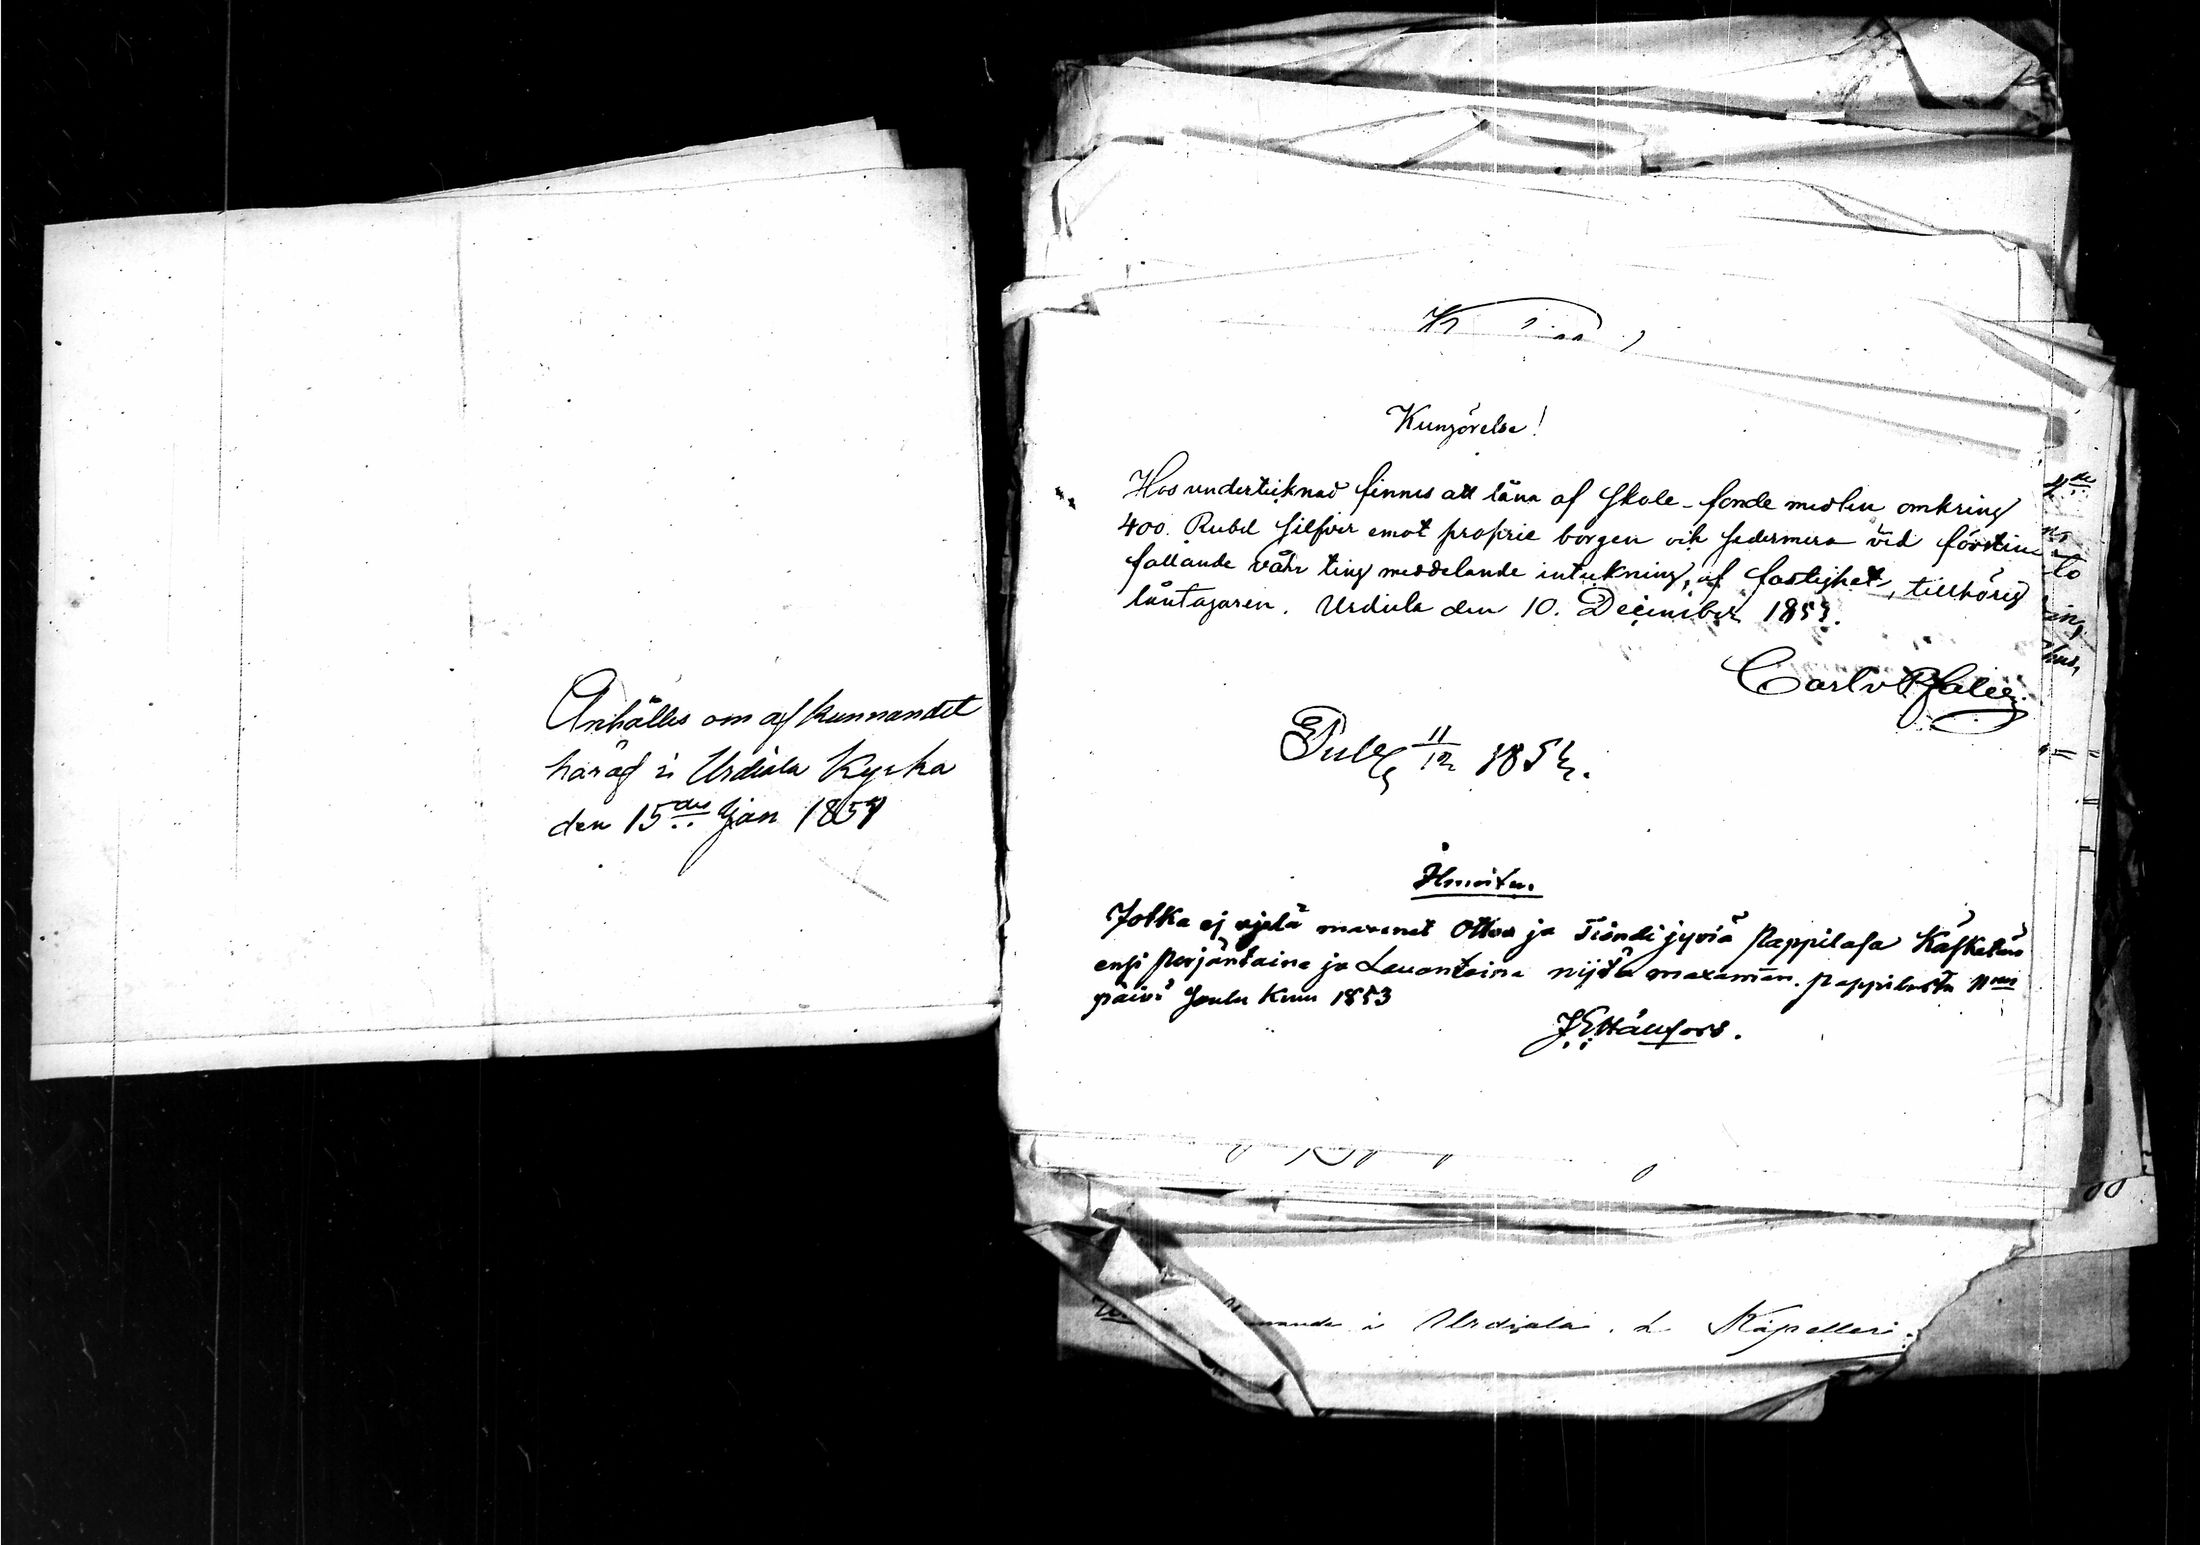 Anhålles om af kunnandet
häraf i Urdiala Kyrka
den 15de Jan 1854
Kungörelse!
Hos undertecknad finnes att låna af Skole-fonde medlen omkring
400. Rubel Silfver emot proprie borgen och sedermera vid förstin
fallande vår ting meddelande inteckning, af fastighet, tillhörig
låntagaren. Urdiala den 10. December 1853.
Carl v Pfaler
Publ. 11/12 1853.
Ilmoitus.
Jotka ej vjelä maxanet Ottoa ja Tiöndi jyviä Pappilasa Käsketän
ensi Perjäntaina ja Lauantaina nijtä maxaman. pappilasta 11
päivä Joulu Kuu 1853
i Urdiala Kapelleri.